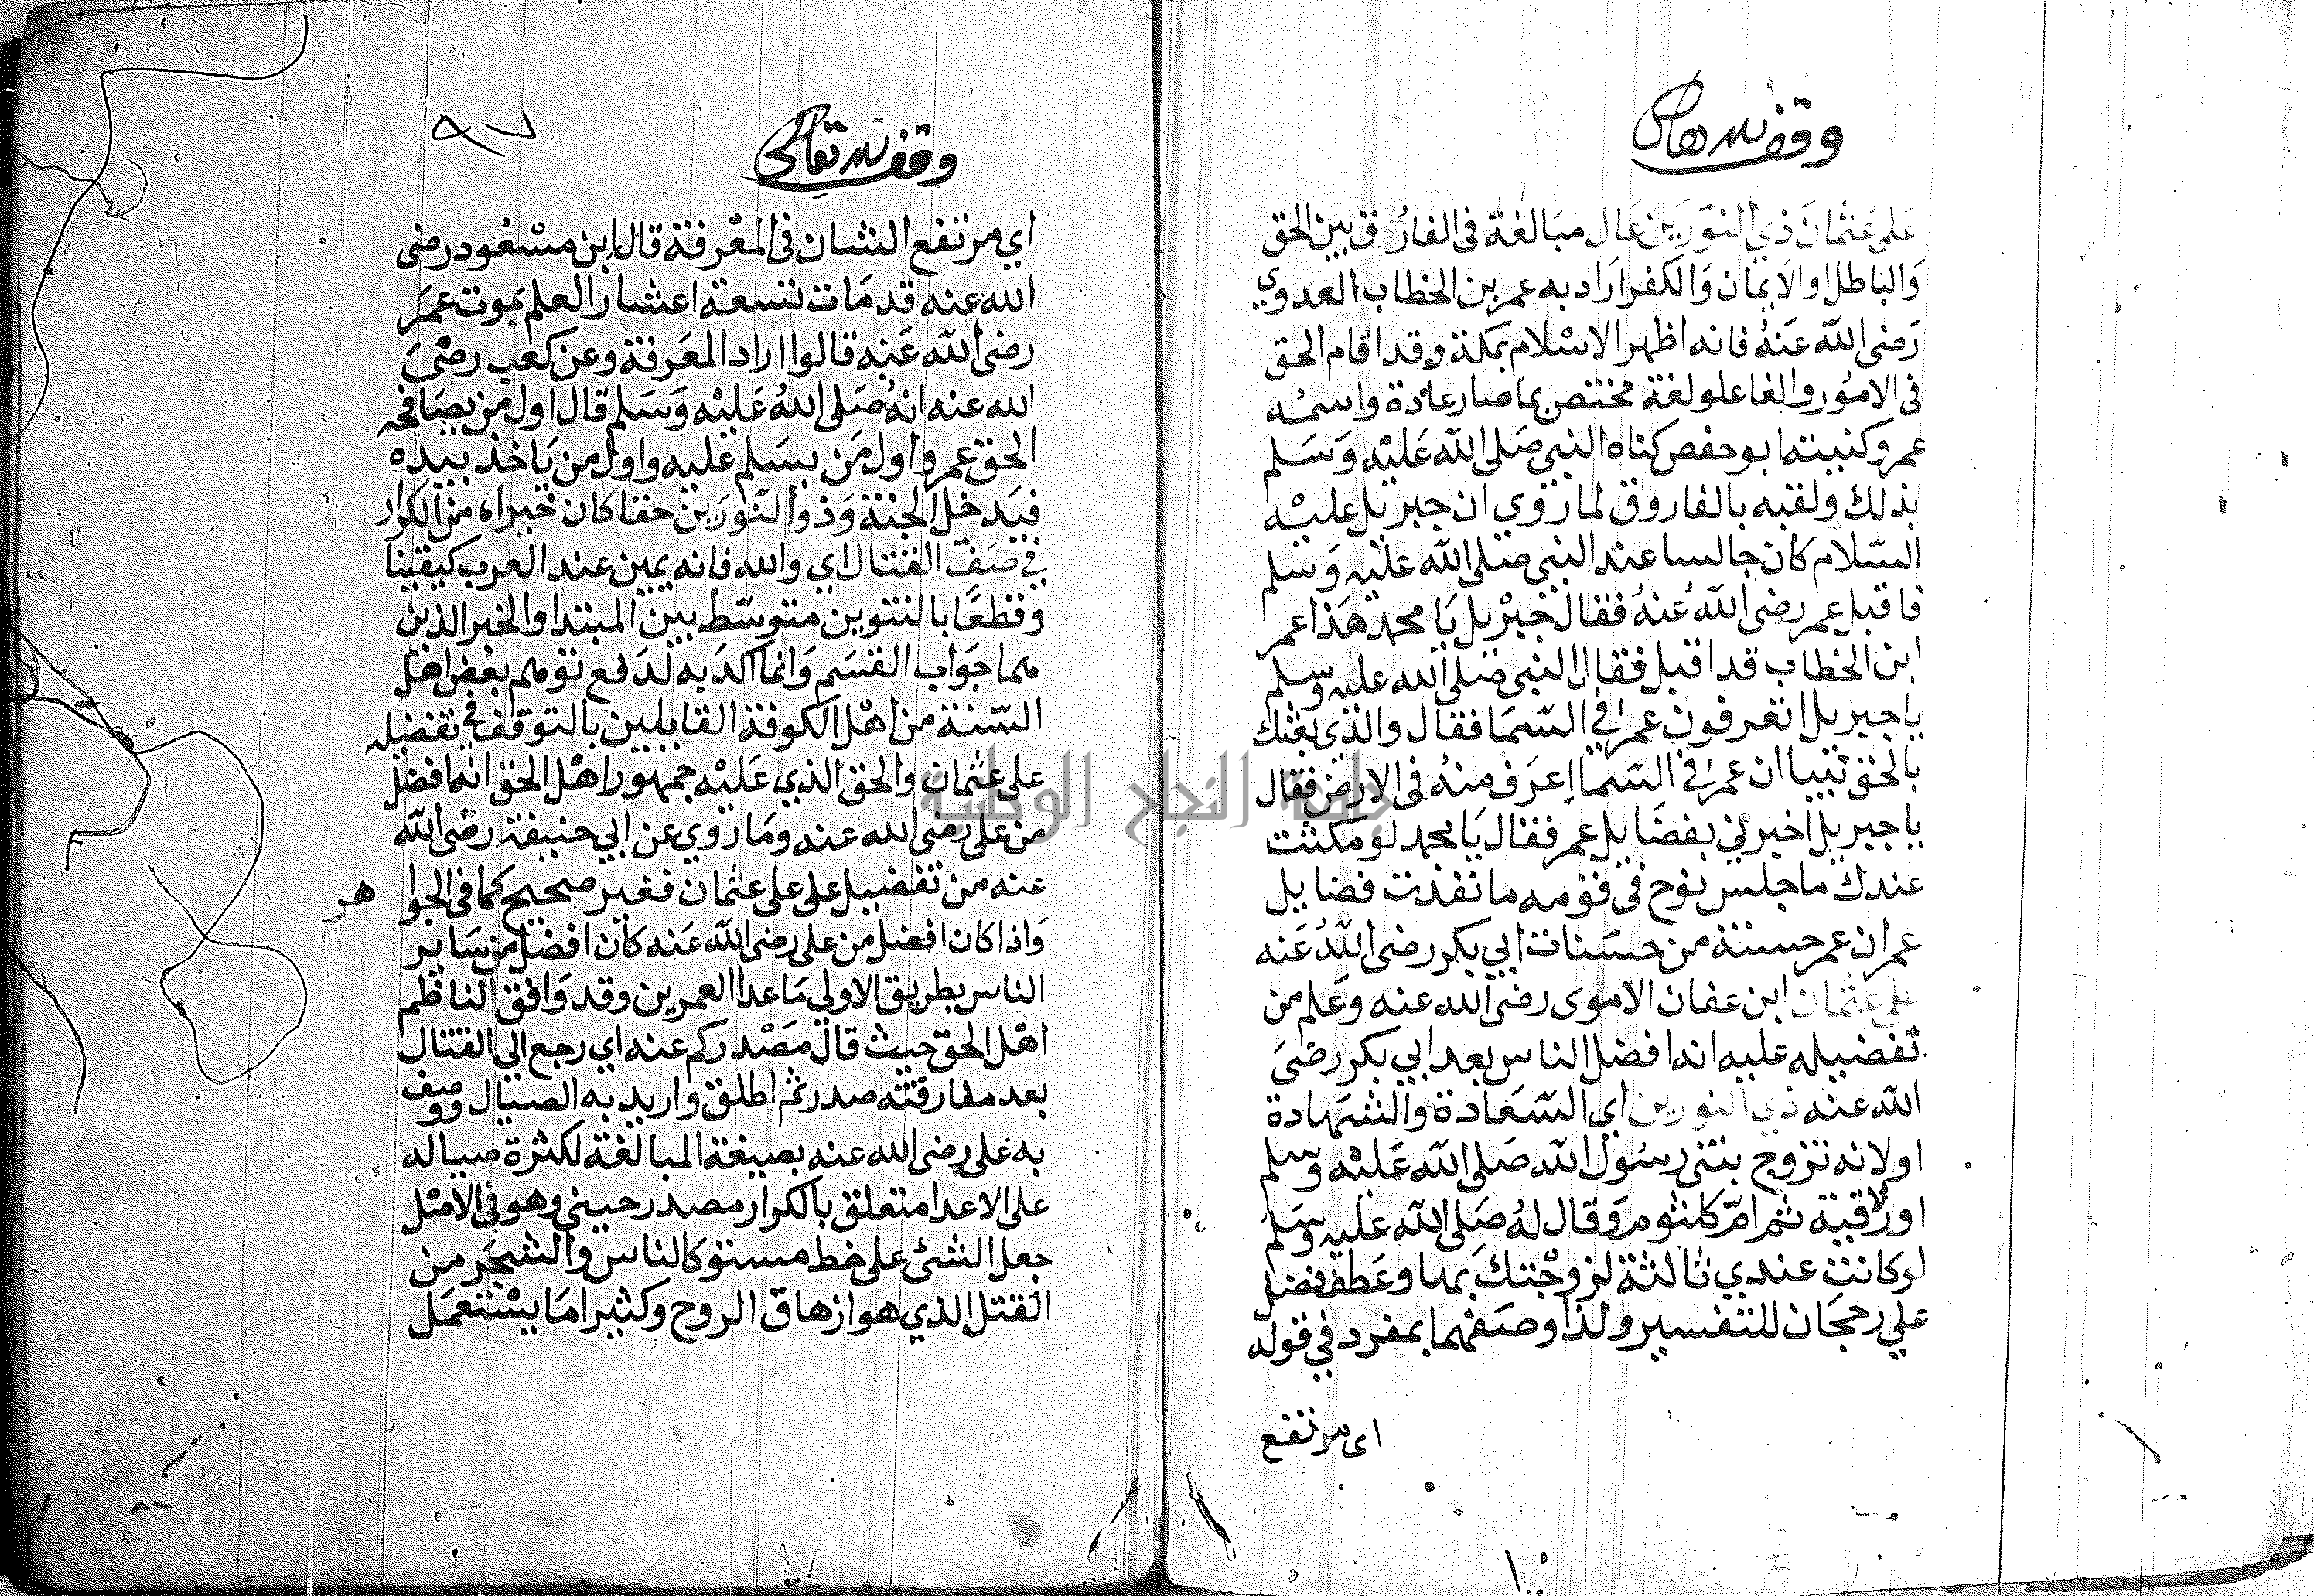 وقف لله تعالى
على عثمان ذي النورين عال مبالغة في الفارق بين الحق
والباطل او الايمان والكفر اراد به عمر بن الخطاب العدوي
رضى الله عنه فانه اظهر الاسلام بمكة وقد اقام الحق
فى الامور والفاعلو لغة مختص بما صار عادة واسمه
عمر وكنيته ابو حفص كناه النبي صلى الله عليه وسلم
بذلك ولقبه بالفاروق لما روي ان جبريل عليه
السلام كان جالسا عند النبي صلى الله عليه وسلم
فاقبل عمر رضى الله عنه فقال جبريل يا محمد هذا عمر
ابن الخطاب قد اقبل فقال النبي صلى الله عليه وسلم
يا جبريل اتعرفون عمر في السما فقال والذي بعثك
بالحق نبيا ان عمر في السما اعرف منه فى الارض فقال
يا جبريل اخبرني بفضايل عمر فقال يا محمد لو مكثت
عندك ما جلس نوح فى قومه ما نفذت فضايل
عمر ان عمر حسنة من حسنات ابي بكر رضى الله عنه
على عثمان ابن عفان الاموى رضى الله عنه وعلم من
تفضيله عليه انه افضل الناس بعد ابي بكر رضى
الله عنه ذي النورين اي السعادة والشهادة
او لانه تزوج بنتى رسول الله صلى الله عليه وسلم
او رقية ثم ام كلثوم وقال له صلى الله عليه وسلم
لو كانت عندي ثالثة لزوجتك بها وعطف فضل
على رجحان للتفسير ولذا وصفهما بمفرد في قوله
اى مرتفع
وقف لله تعالى
٩٧
اي مرتفع الشان فى المعرفة قال ابن مسعود رضى
الله عنه قد مات تسعة اعشار العلم بموت عمر
رضى الله عنه قالوا اراد المعرفة وعن كعب رضى
الله عنه انه صلى الله عليه وسلم قال اول من يصافحه
الحق عمر واول من يسلم عليه واول من ياخذ بيده
فيدخل الجنة وذو النورين حقا كان خيرا من الكرار
في صف القتال اي والله فانه يمين عند العرب كيقينا
وقطعا بالتنوين متوسط بين المبتدا والخبر الذين
هما جواب القسم وانما اكد به لدفع توهم بعض اهل
السنة من اهل الكوفة القايلين بالتوقف في تفضيله
على عثمان والحق الذي عليه جمهور اهل الحق انه افضل
من على رضى الله عنه وما روي عن ابي حنيفة رضى الله
عنه من تفضيل على على عثمان فغير صحيح كما فى الجوا هر
واذا كان افضل من على رضى الله عنه كان افضل من ساير
الناس بطريق الاولى ما عدا العمرين وقد وافق الناظم
اهل الحق حيث قال مصدر كر عنه اي رجع الى القتال
بعد مفارقته صدر ثم اطلق واريد به الصيال ووصف
به على رضى الله عنه بصيغة المبالغة لكثرة صياله
على الاعدا متعلق بالكرار مصدر حيني وهو فى الاصل
جعل الشئ على خط مستو كالناس والشجر من
القتل الذي هو ازهاق الروح وكثيرا ما يستعمل
جامعة النجاح الوطنية